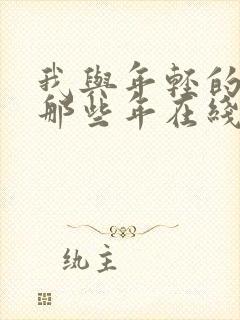 我與年輕的
那些年在綫
纨主